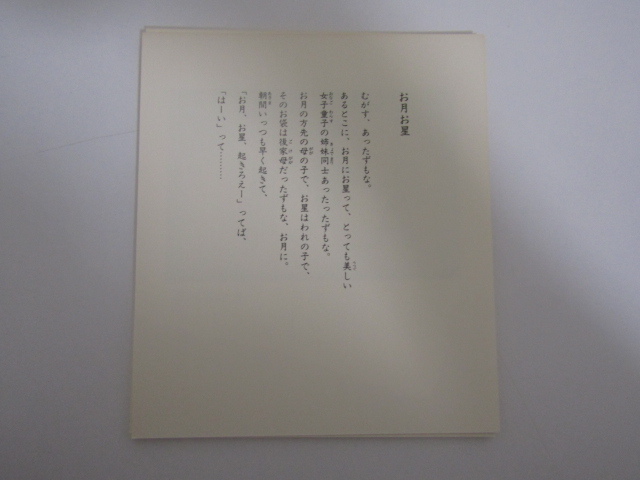 お月お星
むがす、あったずもな。
あるとこに、お月にお星って、とっても美しい
女子童子の姉妹同士あったったずもな。
お月の方先の母の子で、お星はわれの子で、
そのお袋は後家母だったずもな、お月に。
朝間いっつも早く起きて、
「お月、お星、起きろえー」ってば、
「はーい」って………